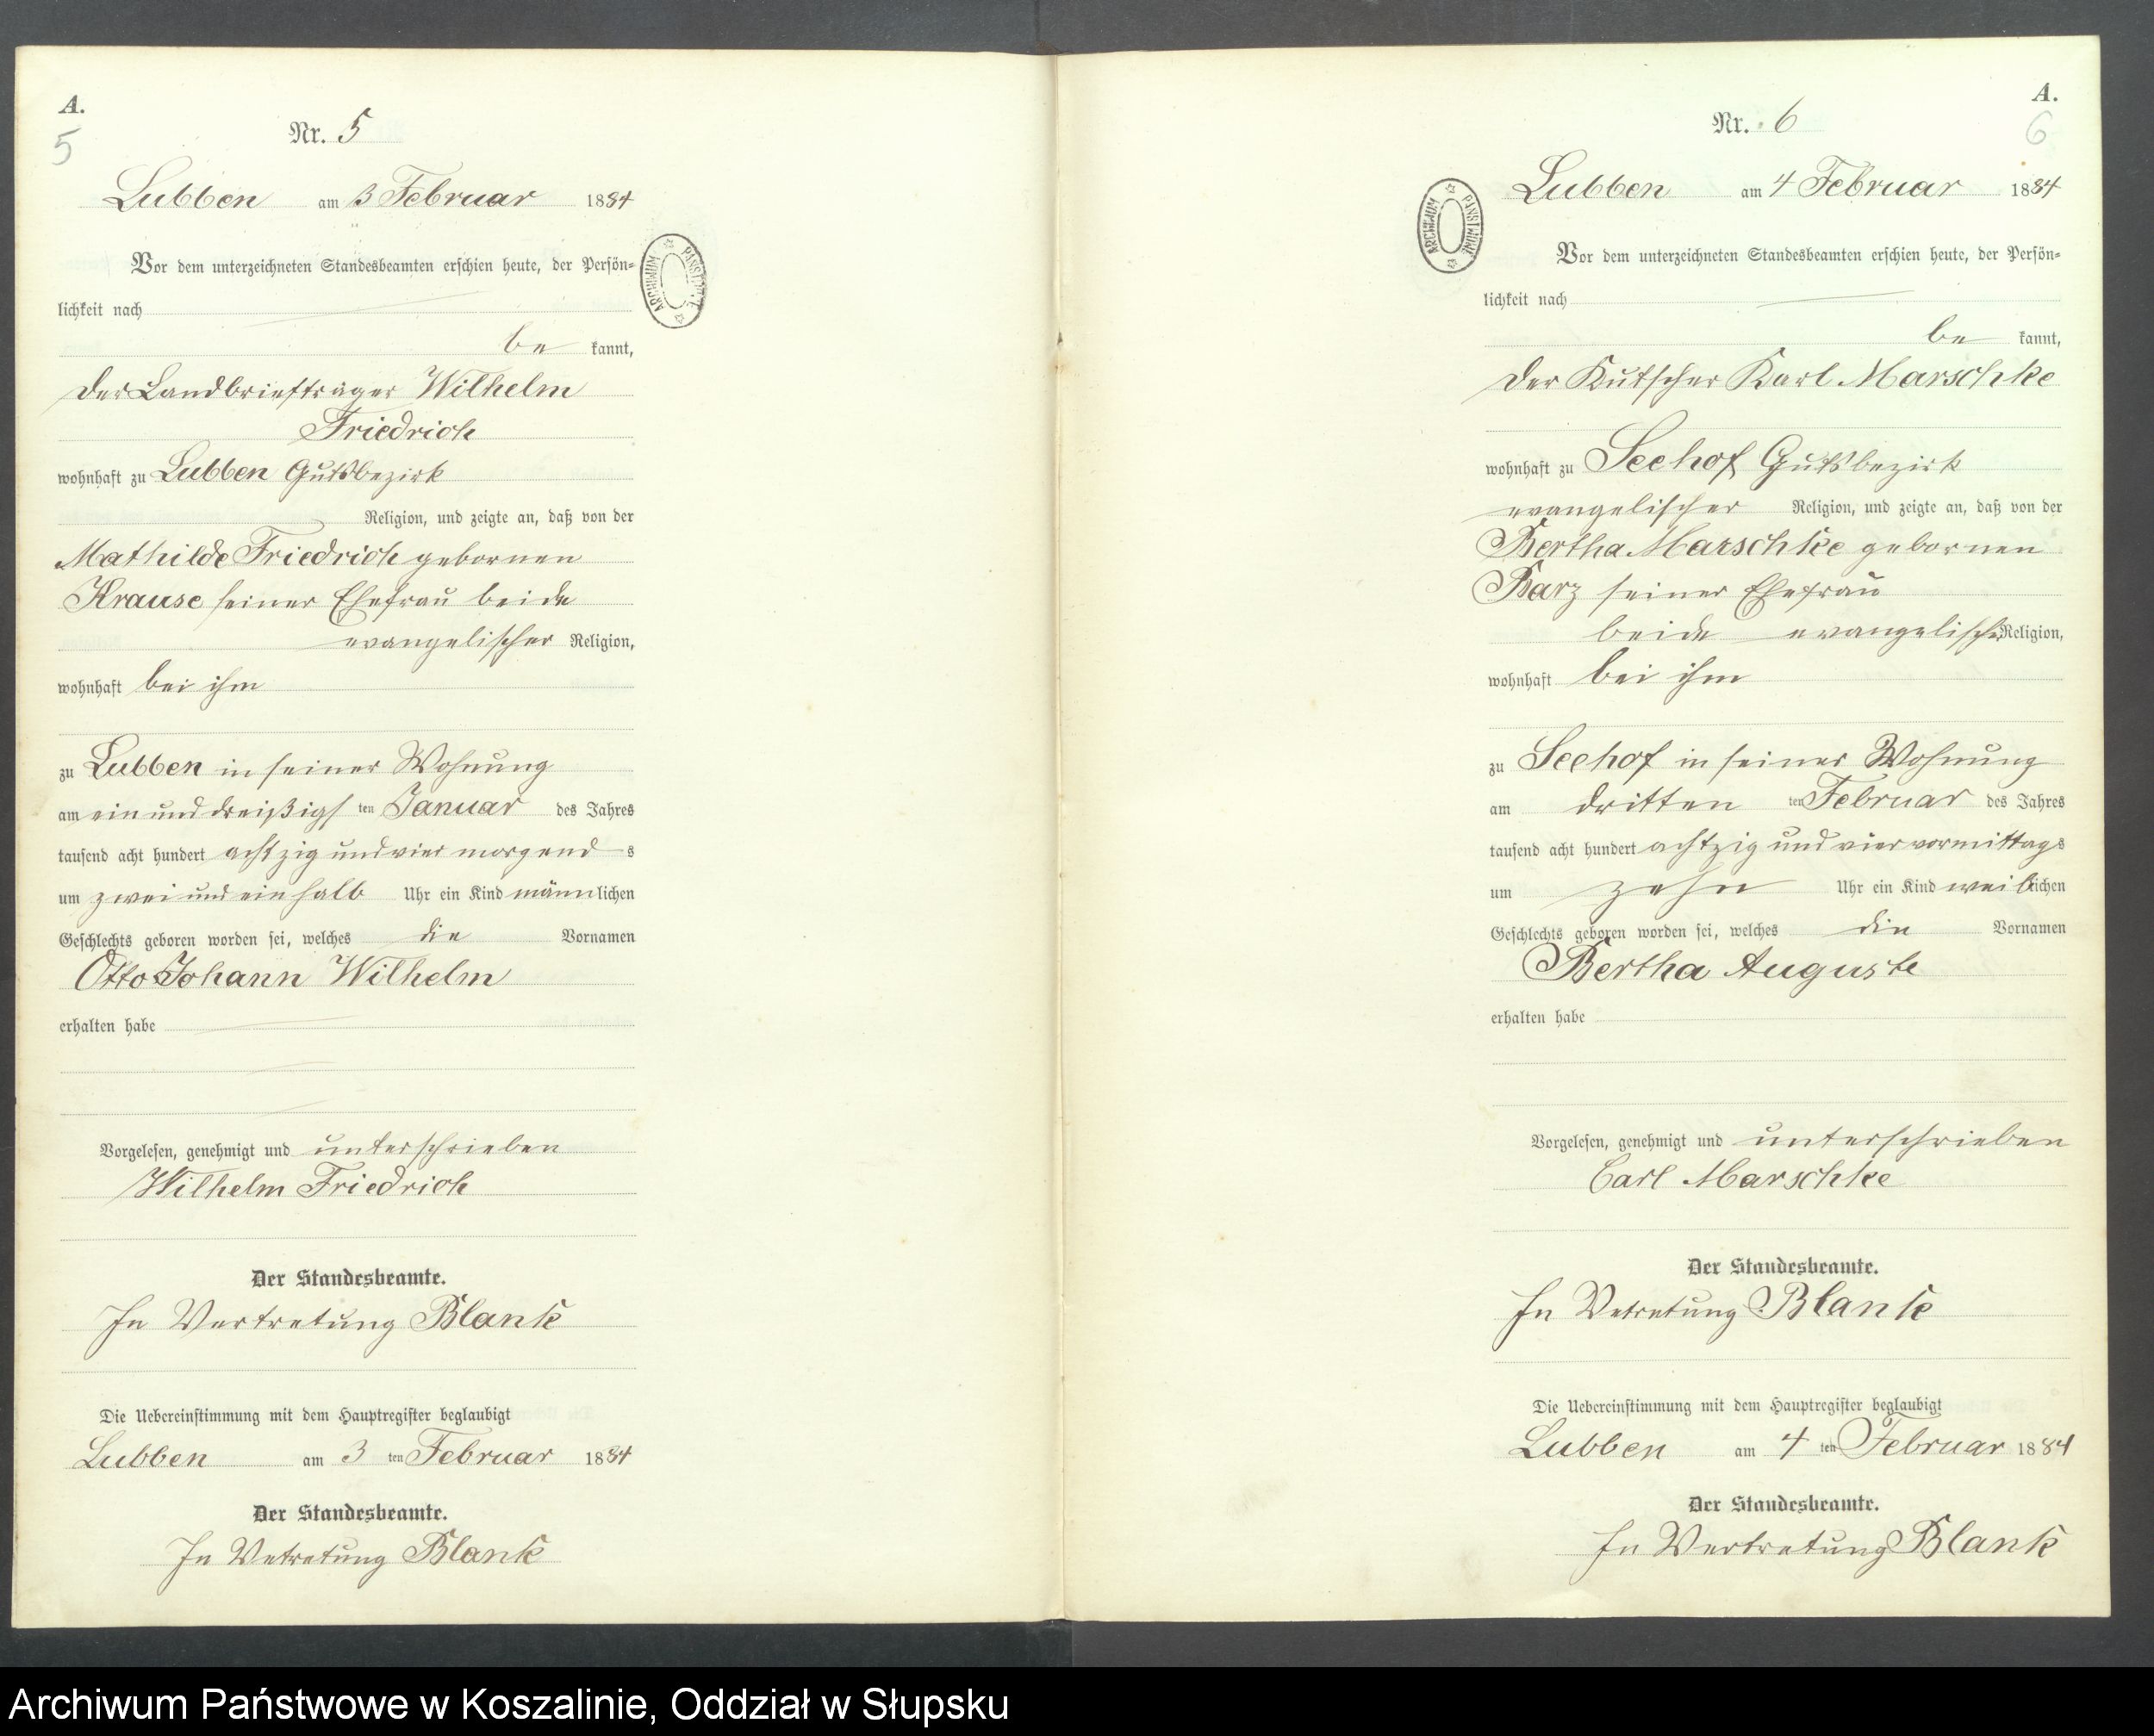 A.
5
Nr. 5
Lubben am 3 Februar 1884
ARCHIWUM PAŃSTWOWE
Vor dem unterzeichneten Standesbeamten erschien heute, der Persön=
lichkeit nach
be kannt,
der Landbriefträger Wilhelm
Friedrich
wohnhaft zu Lubben Gutsbezirk
Religion, und zeigte an, daß von der
Mathilde Friedrich gebornen
Krause seiner Ehefrau beide
evangelischer Religion,
wohnhaft bei ihm
zu Lubben in seiner Wohnung
am ein und dreißigs ten Januar des Jahres
tausend acht hundert achtzig und vier morgend s
um zwei und ein halb Uhr ein Kind männ lichen
Geschlechts geboren worden sei, welches die Vornamen
Otto Johann Wilhelm
erhalten habe
Vorgelesen, genehmigt und unterschrieben
Wilhelm Friedrich
Der Standesbeamte.
In Vertretung Blank
Die Uebereinstimmung mit dem Hauptregister beglaubigt
Lubben am 3 ten Februar 1884
Der Standesbeamte.
In Vetretung Blank
A.
6
Nr. 6
Lubben am 4 Februar 1884
ARCHIWUM PAŃSTWOWE
Vor dem unterzeichneten Standesbeamten erschien heute, der Persön=
lichkeit nach
be kannt,
der Kutscher Karl Marschke
wohnhaft zu Seehof Gutsbezirk
evangelischer Religion, und zeigte an, daß von der
Bertha Marschke gebornen
Barz seiner Ehefrau
beide evangelischer Religion,
wohnhaft bei ihm
zu Seehof in seiner Wohnung
am dritten ten Februar des Jahres
tausend acht hundert achtzig und vier vormittag s
um zehn Uhr ein Kind weib lichen
Geschlechts geboren worden sei, welches die Vornamen
Bertha Auguste
erhalten habe
Vorgelesen, genehmigt und unterschrieben
Carl Marschke
Der Standesbeamte.
In Vetretung Blank
Die Uebereinstimmung mit dem Hauptregister beglaubigt
Lubben am 4 ten Februar 1884
Der Standesbeamte.
In Vertretung Blank
Archiwum Państwowe w Koszalinie, Oddział w Słupsku